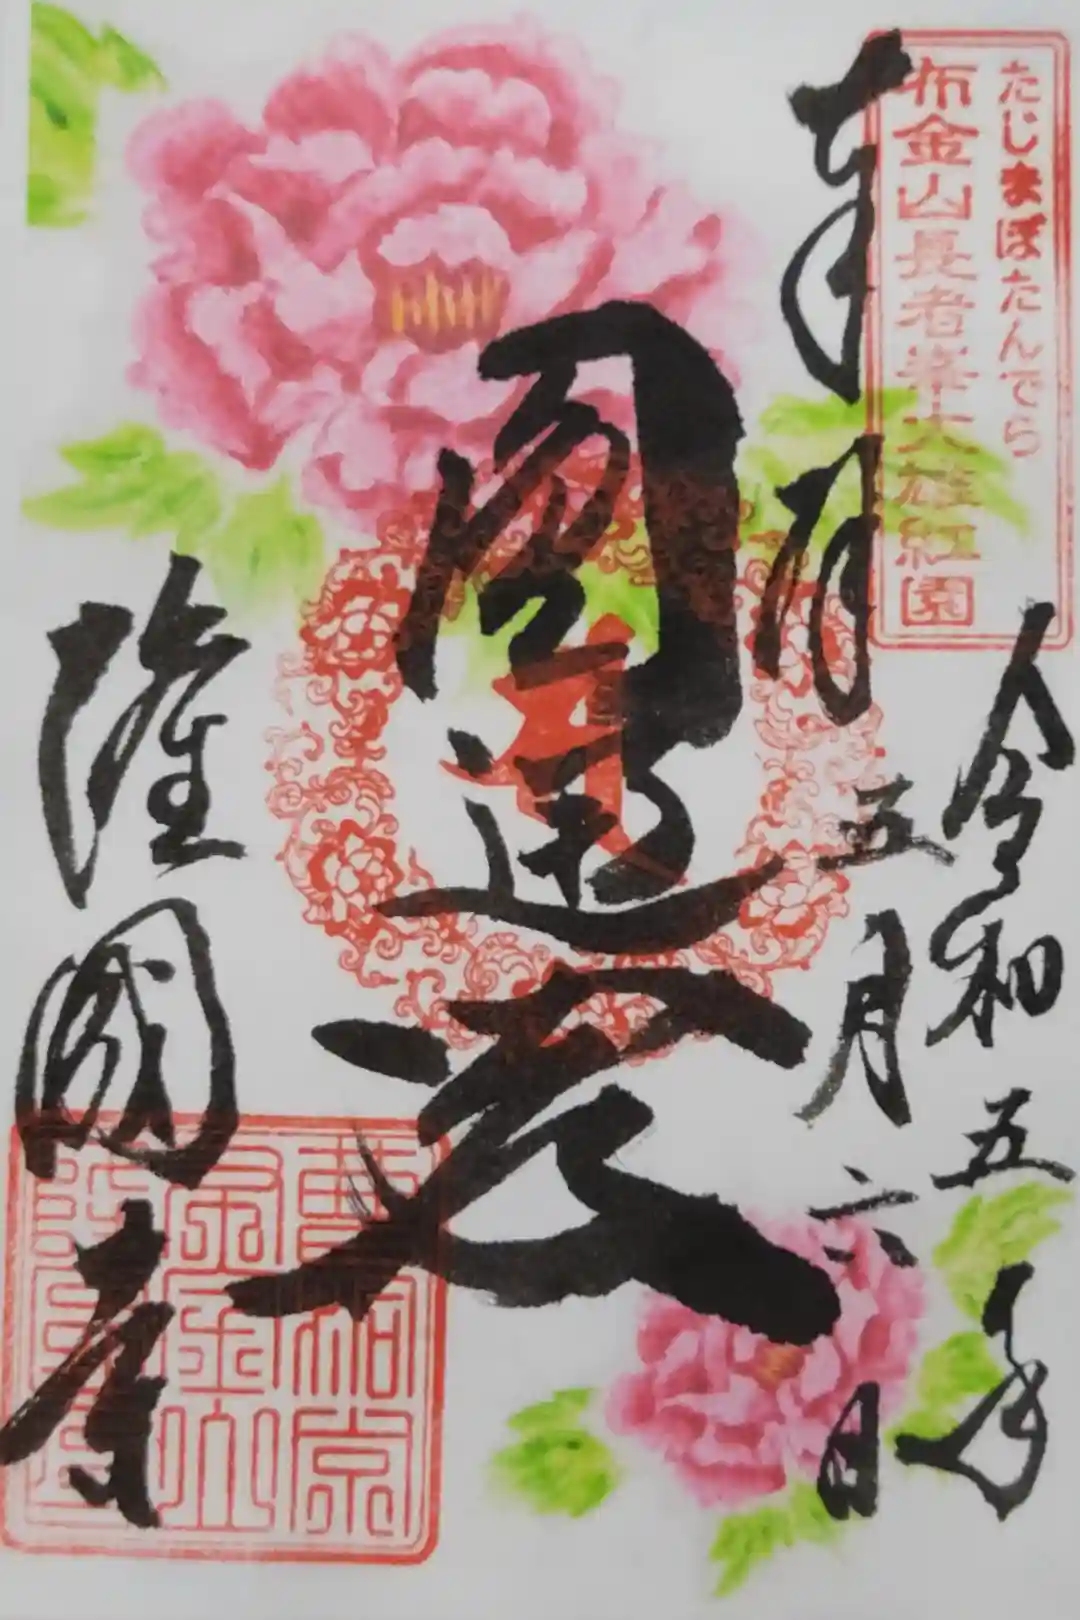 たじまぼたんでら
布金山長者峯大雄紅園
奉拝
令和五年
五月六日
圓通殿
隆國寺